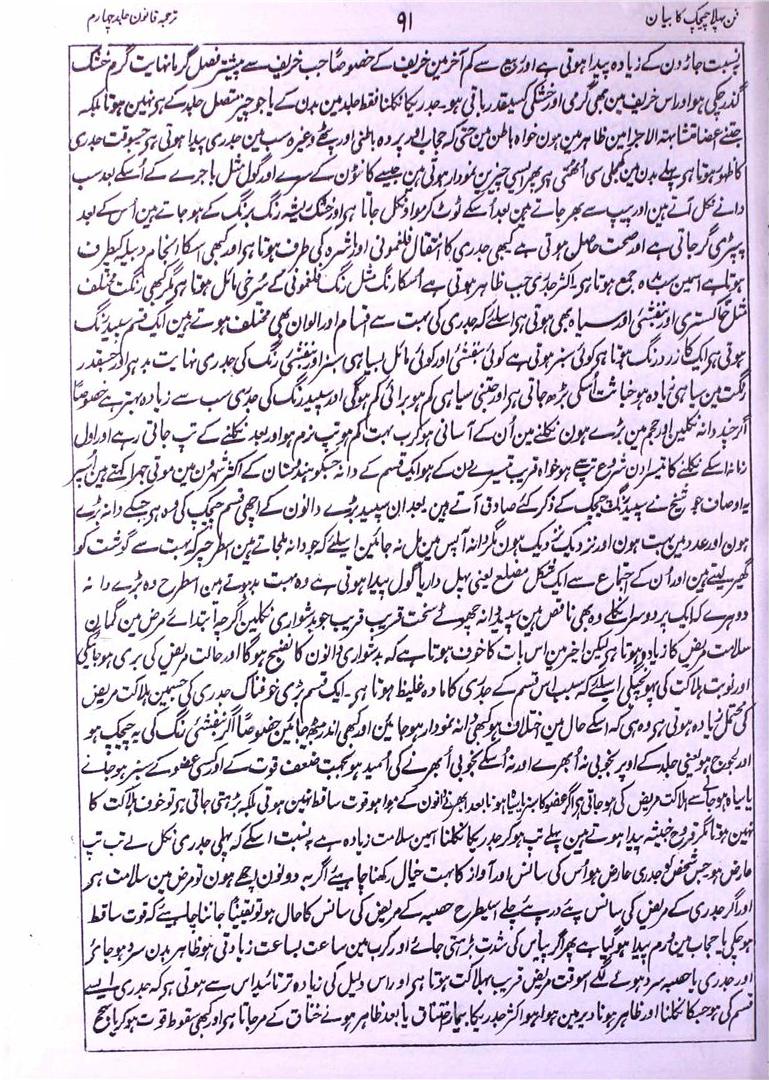 فن پہلا چیچک کا بیان
۹۱
ترجمہ قانون جلد چہارم
بنسبت جاڑون کے زیادہ پیدا ہوتی ہے اور ربیع سے کم آخر مین خریف کے خصوصًا جب خریف سے پیشتر فصل گرما نہایت گرم خشک
گذر چکی ہو اور اس خریف مین بھی گرمی اور خشکی کسیقدر باقی ہو۔ جدریکا نکلنا فقط جلد مین بدن کے یا جو چیز متصل جلد کے ہی نہین ہوتا بلکہ
جتنے اعضا متشابہۃ الاجزا مین ظاہر مین ہون خواہ باطن مین حتی کہ حجاب اور پردہ باطنی اور پٹھے وغیرہ سب مین جدری پیدا ہوتی ہی جسوقت جدری
کا ظہور ہوتا ہی پہلے بدن مین کھجلی سی اُٹھتی ہی پھر ایسی چیزین نمودار ہوتی ہین جیسے کانٹون کے سرے اور گول مثل باجرے کے اُسکے بعد سب
دانے نکل آتے ہین اور پیپ سے بھر جاتے ہین بعد اُسکے ٹوٹ کر مواد نکل جاتا ہی اور خشک ریشہ رنگ برنگ کے ہو جاتے ہین اُس کے بعد
پپڑی گر جاتی ہے اور صحت حاصل ہوتی ہے کبھی جدری کا انتقال فلغمونی اور ماشرہ کی طرف ہوتا ہی اور کبھی اسکا انجام دبیلہ کیطرف
ہوتا ہے اسمین سب مادہ جمع ہوتا ہی۔ اکثر جدری جب ظاہر ہوتی ہے اُسکا رنگ مثل رنگ فلغمونی کے سُرخی مائل ہوتا ہی مگر کبھی رنگت مختلف
مثل خاکستری اور بنفشئی اور سیاہ بھی ہوتی ہی اسلئے کہ جدری کی بہت سے اقسام اور الوان بھی مختلف ہوتے ہین ایک قسم سپید رنگ
ہوتی ہی ایک کا زرد رنگ ہوتا ہی کوئی سبز ہوتی ہے کوئی بنفشئی اور کوئی مائل بسیاہی سبز اور بنفشئی رنگ کی جدری نہایت بد ہی اور جسقدر
رنگت مین سیاہی زیادہ ہو خباثت اُسکی بڑھ جاتی ہی اور جتنی سیاہی کم ہو برائی کم ہوگی اور سپید رنگ کی جدری سب سے زیادہ بہتر ہے خصوصًا
اگر چند دانہ نکلین اور حجم مین بڑے ہون نکلنے مین اُن کے آسانی ہو کرب بہت کم ہو تپ نرم ہو اور بعد نکلنے کے تپ جاتی رہے اور اول
زمانہ اسکے نکلنے کا تیسرا دن شروع تپ سے ہو خواہ قریب تیسرے دن کے ہو ایک قسم کے دانہ جنکو ہندوستان کے اکثر شہرون مین موتی جھرا کہتے ہین اُسپر
یہ اوصاف جو شیخ نے سپید رنگ چیچک کے ذکر کئے صادق آتے ہین۔ بعد ان سپید بڑے دانون کے اچھی قسم چیچک کی وہ ہی جسکے دانہ بڑے
ہون اور عدد مین بہت ہون اور نزدیک نزدیک ہون مگر دانہ آپس مین مل نہ جائین اسلئے کہ جو دانہ ملجاتے ہین اسطرحپر کہ بہت سے گوشت کو
گھیر لیتے ہین اور اُن کے اجتماع سے ایک شکل مضلع یعنی پہل دار یا گول پیدا ہوتی ہے وہ بہت بد ہوتے ہین اسطرح وہ بڑے دانہ
دوہرے کہ ایک پر دوسرا نکلے وہ بھی ناقص ہین سپید دانہ چھوٹے سخت قریب قریب جو بدشواری نکلین اگرچہ ابتدائے مرض مین گمان
سلامت مریض کا زیادہ ہوتا ہی لیکن آخر مین اس بات کا خوف ہوتا ہے کہ بدشواری دانون کا نضج ہوگا اور حالت مریض کی بری ہوجائیگی
اور نوبت ہلاکت کی پہونچیگی اسلئے کہ سبب اس قسم کے جدری کا مادہ غلیظ ہوتا ہی۔ ایک قسم بڑی خوفناک جدری کی جسمین ہلاکت مریض
کی محتمل زیادہ ہوتی ہی وہ ہی کہ اسکے حال مین اختلاف ہو کبھی دانہ نمودار ہو جائین اور کبھی اندر بیٹھ جائین خصوصًا اگر بنفشئی رنگ کی یہ چیچک ہو
اور لجوج ہو یعنی جلد کے اوپر بخوبی نہ اُبھرے اور نہ اُسکے بخوبی اُبھرنے کی اُمید ہو بجہت ضعف قوت کے اور کسی عضو کے سبز ہو جانے
یا سیاہ ہو جانے سے ہلاکت مریض کی ہو جاتی ہی اگر عضو کا سبز یا سیاہ ہونا بعد اُبھرنے دانون کے ہو اور قوت ساقط نہین ہوتی بلکہ بڑہتی جاتی ہی تو خوف ہلاکت کا
نہین ہوتا مگر قروح خبیثہ پیدا ہوتے ہین پہلے تپ ہو کر جدریکا نکلنا اسمین سلامت زیادہ ہے بنسبت اسکے کہ پہلی جدری نکل لے تب تپ
عارض ہو جس شخص کو جدری عارض ہو اُس کی سانس اور آواز کا بہت خیال رکھنا چاہیے اگر یہ دونون اچھے ہون تو مرض مین سلامت ہی
اور اگر جدری کے مریض کی سانس پے در پے چلے اسیطرح حصبہ کے مریض کی سانس کا حال ہو تو یقینًا جاننا چاہیے کہ قوت ساقط
ہو چکی یا حجاب مین ورم پیدا ہو گیا ہے پھر اگر پیاس کی شدت بڑہتی جائے اور کرب مین ساعت بساعت زیادتی ہو ظاہر بدن سرد ہو جائے
اور جدری یا حصبہ سرد ہونے لگے اسوقت مریض قریب بہلاکت ہوتا ہی اور اس دلیل کی زیادہ تر تائید اس سے ہوتی ہی کہ جدری ایسے
قسم کی ہو جسکا نکلنا اور ظاہر ہونا دیر مین ہوا ہو اکثر جدریکا بیمار اختناق یا بعد ظاہر ہونے خناق کے مر جاتا ہی اور کبھی سقوط قوت ہو کر یا سحج